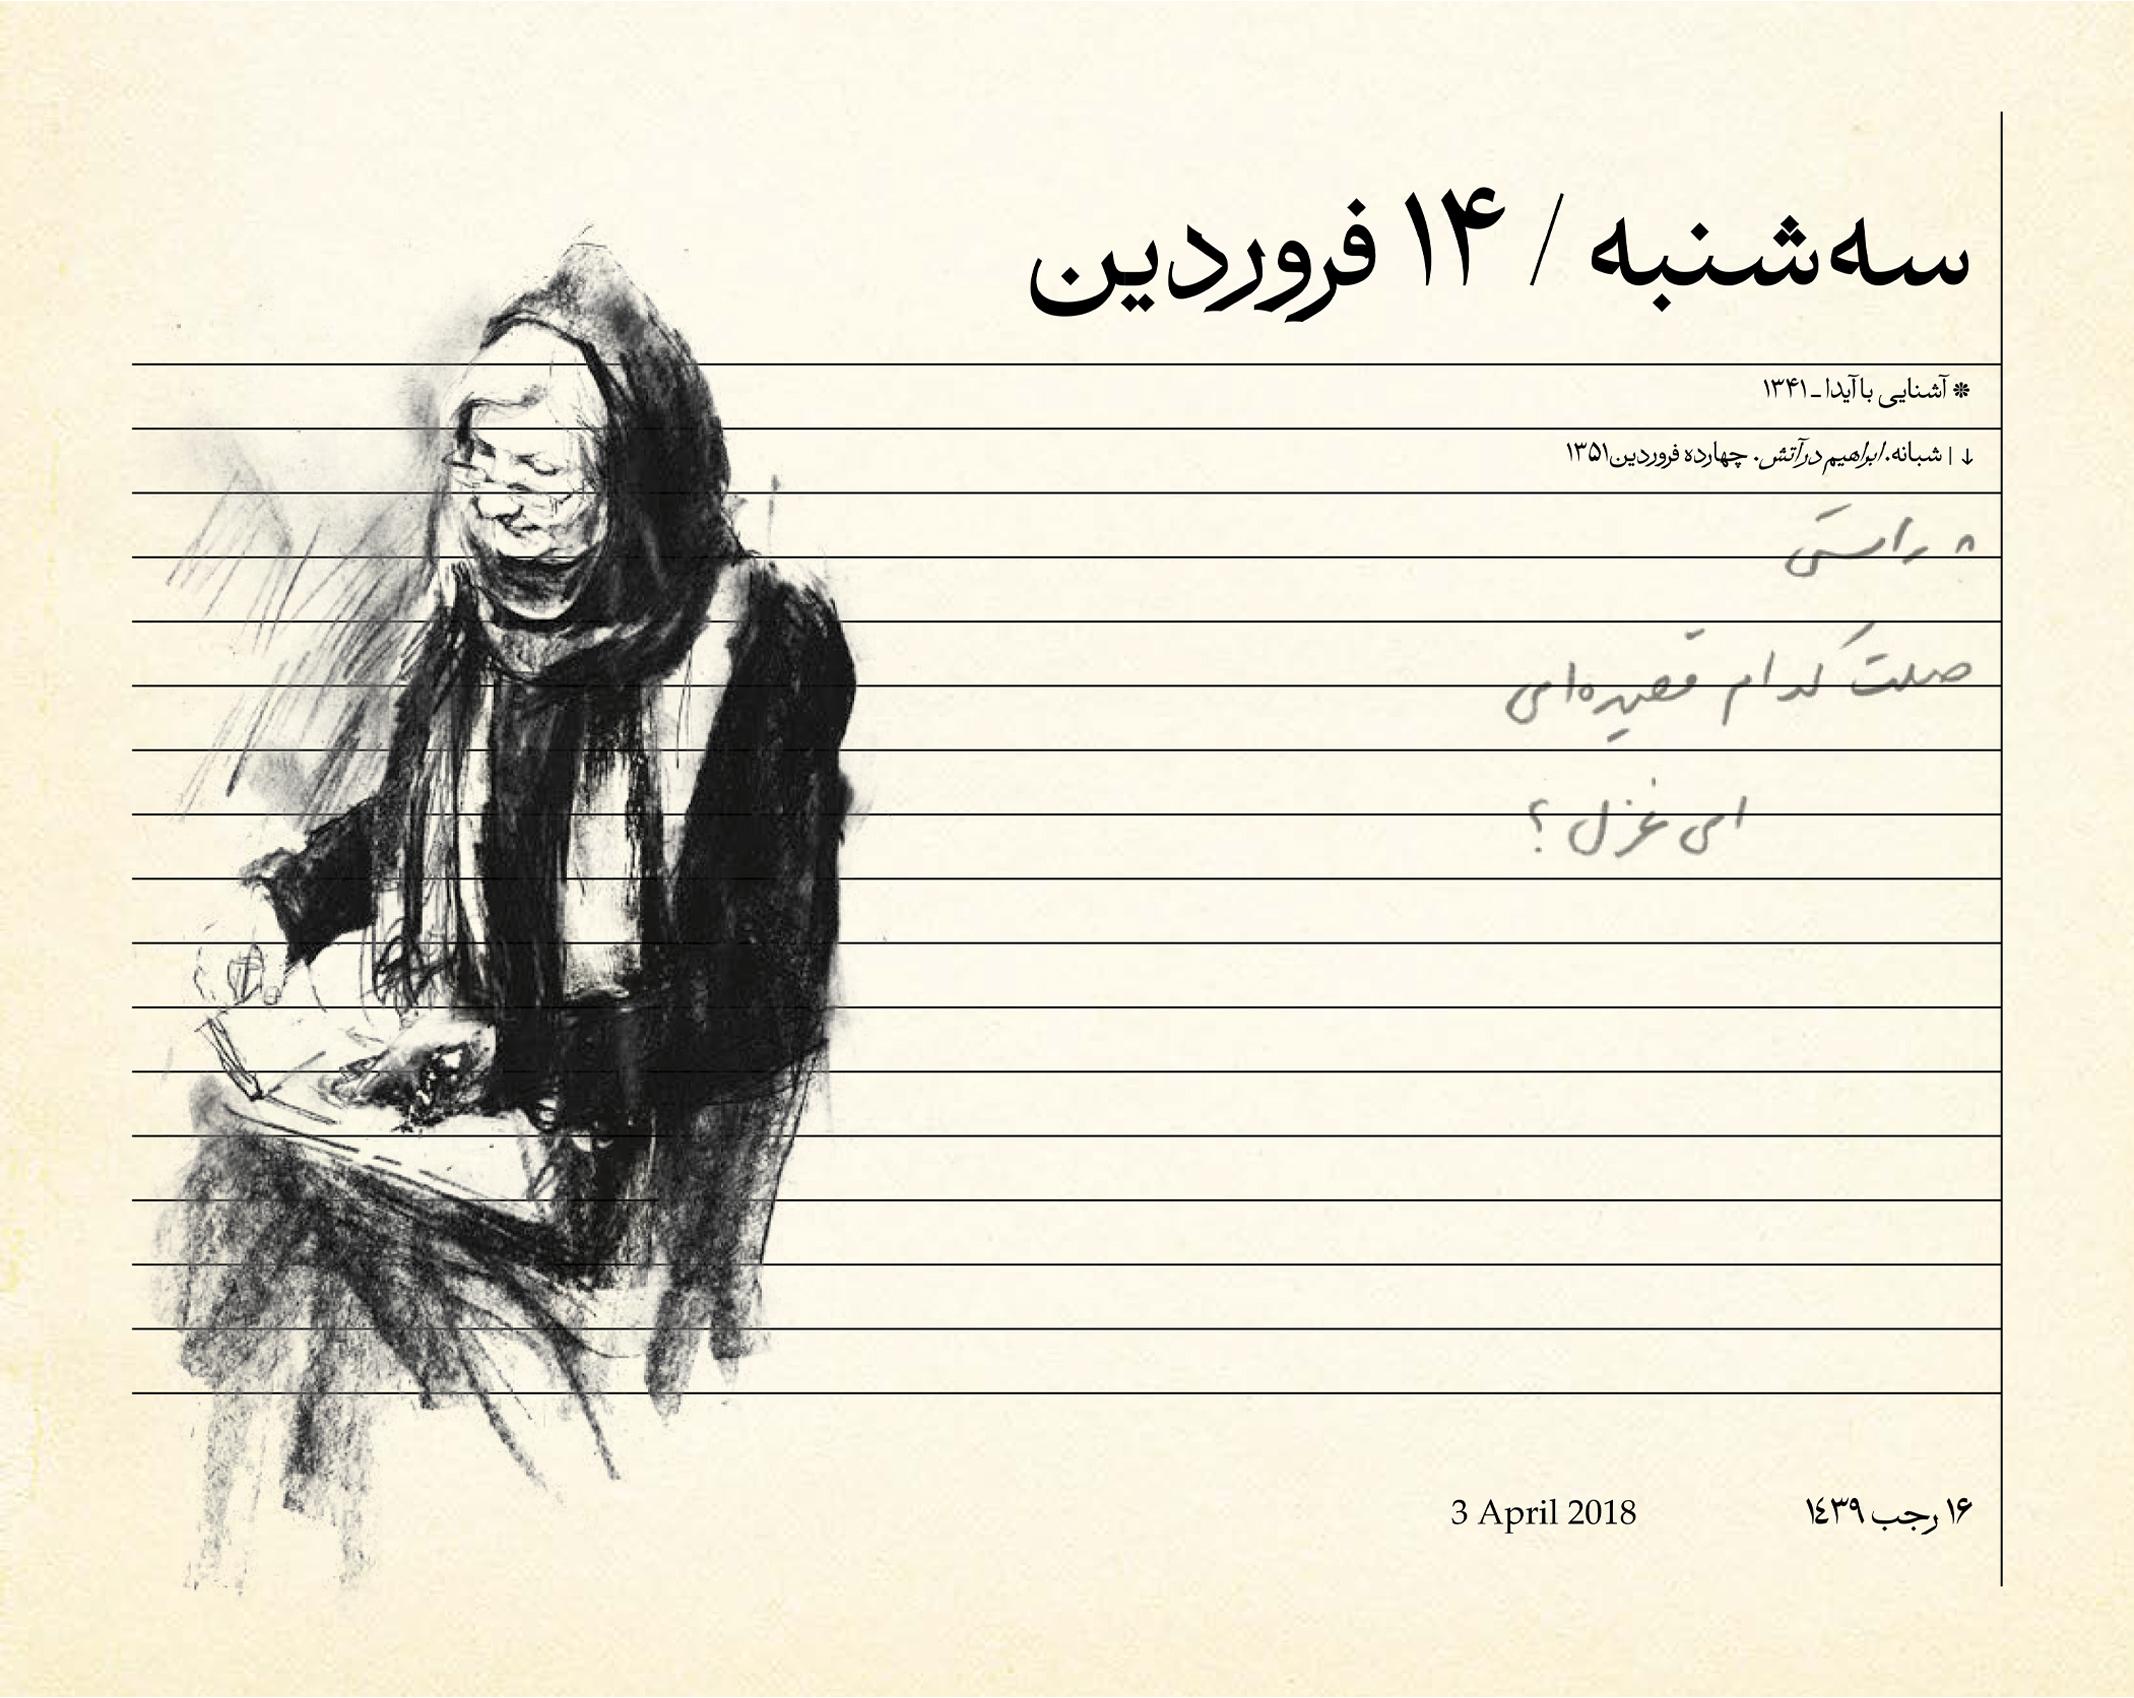 سه‌شنبه / ۱۴ فروردین
* آشنایی با آیدا ـ ۱۳۴۱
↓ | شبانه. ابراهیم در آتش. چهارده فروردین ۱۳۵۱
به راستی
صلت کدام قصیده‌ای
ای غزل؟
۱۶ رجب ۱۴۳۹
3 April 2018